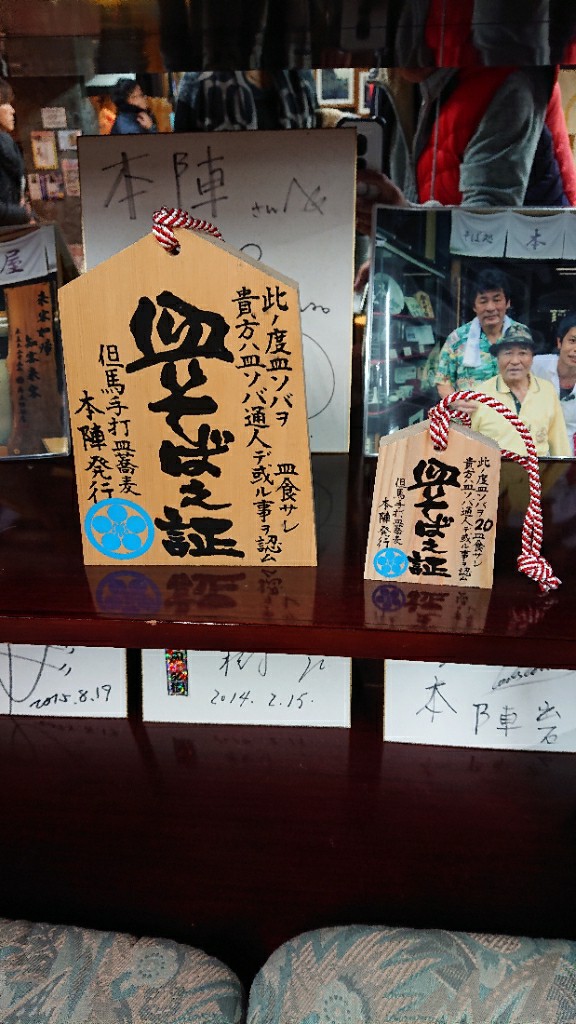 本陣さん
此ノ度皿ソバヲ 皿食サレ
貴方ハ皿ソバ通人デ或ル事ヲ認ム
皿そばえ証
但馬手打皿蕎麦
本陣発行
そば処 本
屋
此ノ度皿ソバヲ20皿食サレ
貴方ハ皿ソバ通人デ或ル事ヲ認ム
皿そばえ証
但馬手打皿蕎麦
本陣発行
2015.8.19
2014.2.15.
本陣